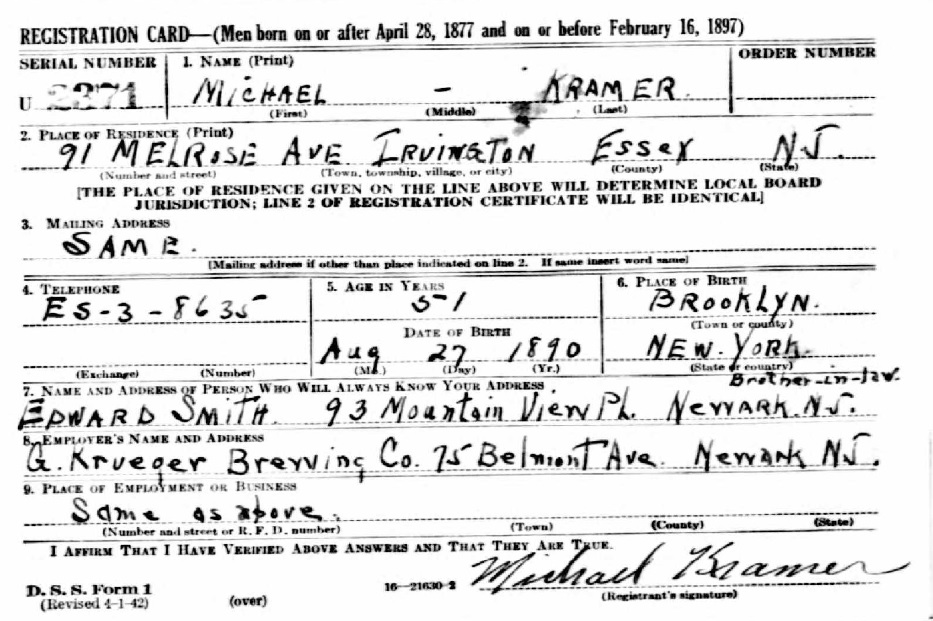 REGISTRATION CARD—(Men born on or after April 28, 1877 and on or before February 16, 1897)
SERIAL NUMBER 1. NAME (Print) ORDER NUMBER
U 2371 MICHAEL - KRAMER.
(First) (Middle) (Last)
2. PLACE OF RESIDENCE (Print)
91 MELROSE AVE IRVINGTON ESSEX N.J.
(Number and street) (Town, township, village, or city) (County) (State)
[THE PLACE OF RESIDENCE GIVEN ON THE LINE ABOVE WILL DETERMINE LOCAL BOARD
JURISDICTION; LINE 2 OF REGISTRATION CERTIFICATE WILL BE IDENTICAL]
3. MAILING ADDRESS
SAME.
[Mailing address if other than place indicated on line 2. If same insert word same]
4. TELEPHONE 5. AGE IN YEARS 6. PLACE OF BIRTH
ES-3-8635 51 BROOKLYN.
(Town or county)
DATE OF BIRTH
Aug 27 1890 NEW. YORK.
(Exchange) (Number) (Mo.) (Day) (Yr.) (State or country)
7. NAME AND ADDRESS OF PERSON WHO WILL ALWAYS KNOW YOUR ADDRESS Brother-in-law.
EDWARD SMITH. 93 Mountain View Pl. Newark. N.J.
8. EMPLOYER'S NAME AND ADDRESS
G. Krueger Brewing Co. 75 Belmont Ave. Newark N.J.
9. PLACE OF EMPLOYMENT OR BUSINESS
Same as above.
(Number and street or R. F. D. number) (Town) (County) (State)
I AFFIRM THAT I HAVE VERIFIED ABOVE ANSWERS AND THAT THEY ARE TRUE.
D. S. S. Form 1 16—21630-2 Michael Kramer
(Revised 4-1-42) (over) (Registrant's signature)